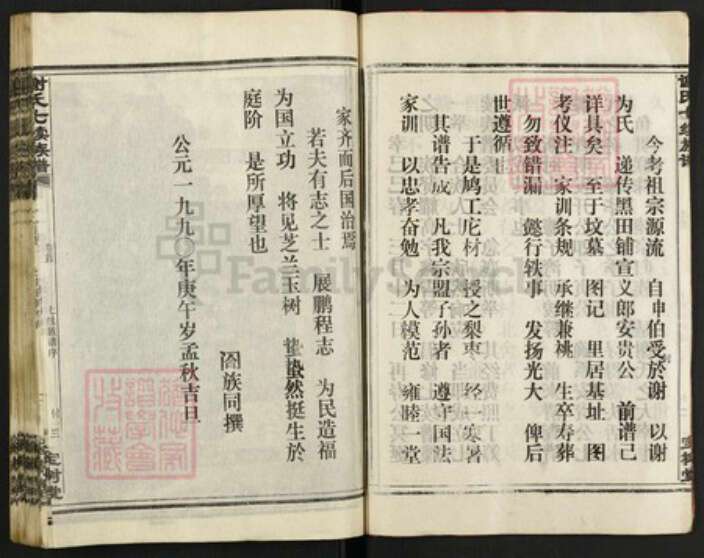 今考祖宗源流 自申伯受於谢 以谢
为氏 递传黑田铺宣义郎安贵公 前谱已
详具矣 至于坟墓 图记 里居基址 图
考仪注 家训条规 承继兼祧 生卒寿葬
勿致错漏 懿行轶事 发扬光大 俾后
世遵循
于是鸠工庀材 授之梨枣 经寒暑
其谱告成 凡我宗盟子孙者 遵守国法
家训 以忠孝奋勉 为人模范 雍睦一堂
家齐而后国治焉
若夫有志之士 展鹏程志 为民造福
为国立功 将见芝兰玉树 蛰蛰然挺生於
庭阶 是所厚望也
阖族同撰
公元一九九〇年庚午岁孟秋吉旦
谢氏七续族谱
FamilySearch